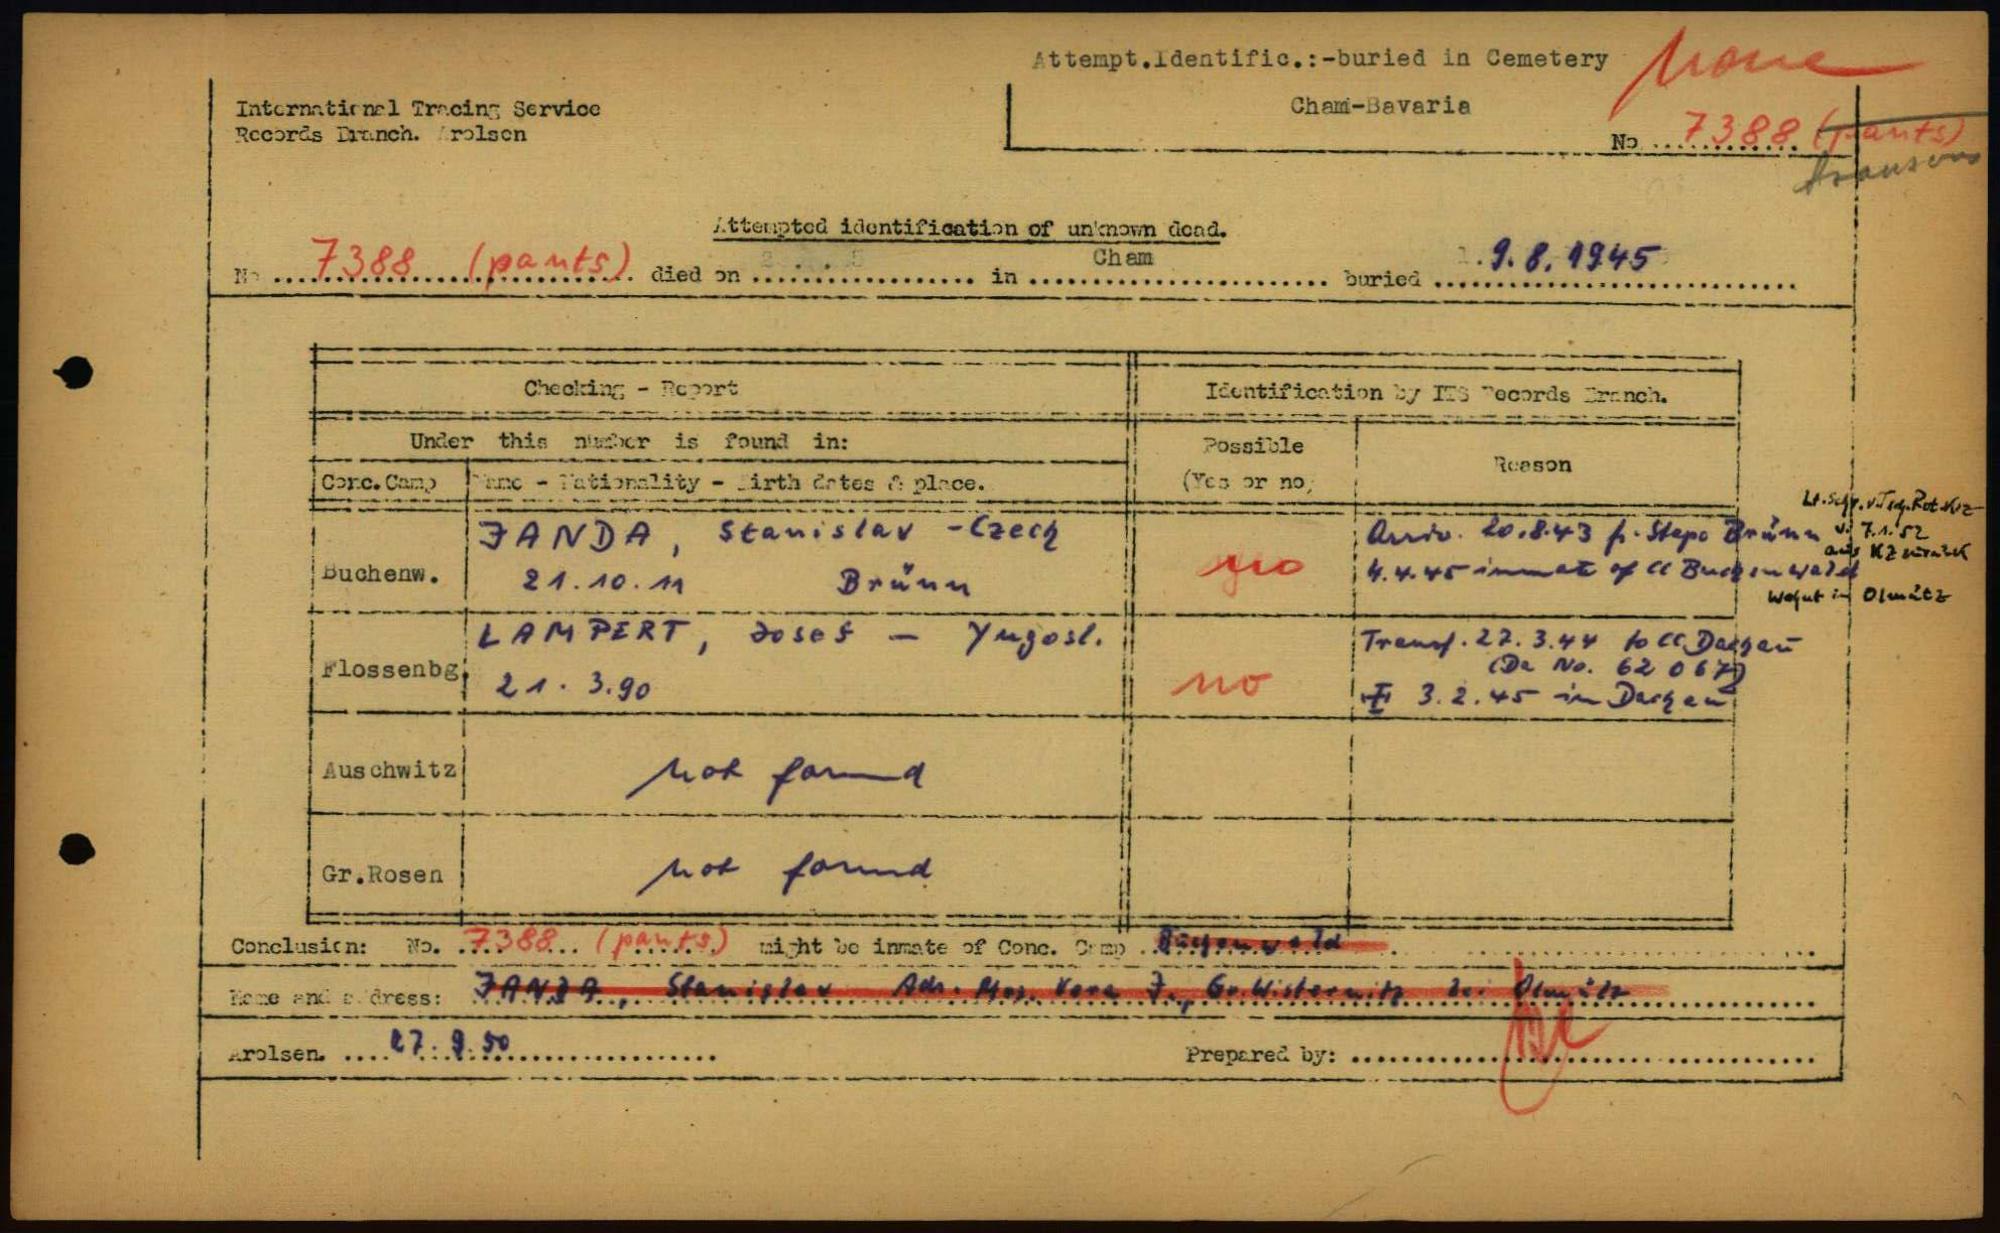 Attempt.Identific.:-buried in Cemetery
None
Cham-Bavaria
International Tracing Service
Records Branch. Arolsen
No 7388 (pants)
Attempted identification of unknown dead.
No 7388 (pants) died on in Cham buried 9.8.1945
Checking - Report
Identification by ITS Records Branch.
Under this number is found in:
Possible
(Yes or no)
Reason
Conc.Camp
Name - Nationality - Birth dates & place.
Buchenw.
JANDA, Stanislav - Czech
21.10.11 Brünn
no
Arriv. 20.8.43 fr. Stapo Brünn
4.4.45 inmate of CC Buchenwald
v. 7.1.52
aus KZ zurück
wohnt in Olmütz
Flossenbg.
LAMPERT, Josef - Yugosl.
21.3.90
no
Transf. 22.3.44 to CC Dachau
(Da No. 62067)
3.2.45 in Dachau
Auschwitz
not found
Gr.Rosen
not found
Conclusion: No. 7388 (pants) might be inmate of Conc. Camp Buchenwald
Name and address: JANDA, Stanislav Adr. Vera J., Gr. Wisternitz bei Olmütz
Arolsen. 27.9.50
Prepared by: